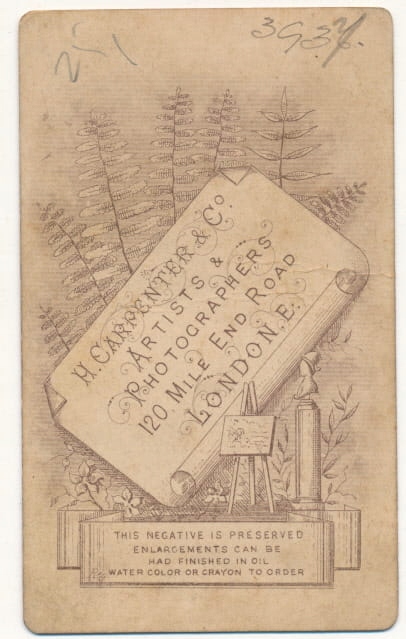 H. CARPENTER & Co.
ARTISTS &
PHOTOGRAPHERS
120, MILE END ROAD
LONDON, E.
THIS NEGATIVE IS PRESERVED
ENLARGEMENTS CAN BE
HAD FINISHED IN OIL
WATER COLOR OR CRAYON TO ORDER